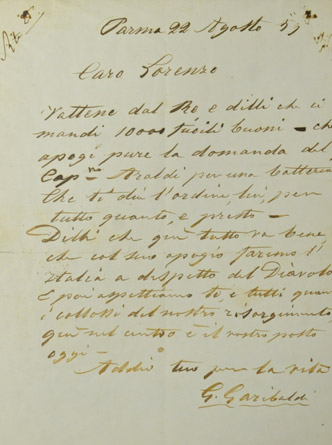 Parma 22 Agosto 59
Caro Lorenzo
Vattene dal Re e dilli che ci
mandi 10000 fucili buoni — che
apogi pure la domanda del
Cap.no Araldi per una batteria
Che ti dii l'ordine, lui, per
tutto quanto, e presto —
Dilli che quì tutto va bene
che col suo apogio faremo l'
Italia a dispetto del Diavolo
E poi aspettiamo te, e tutti quanti
i colossi del nostro risorgimento
quì nel centro è il vostro posto
oggi —
Addio tuo per la vita
G. Garibaldi